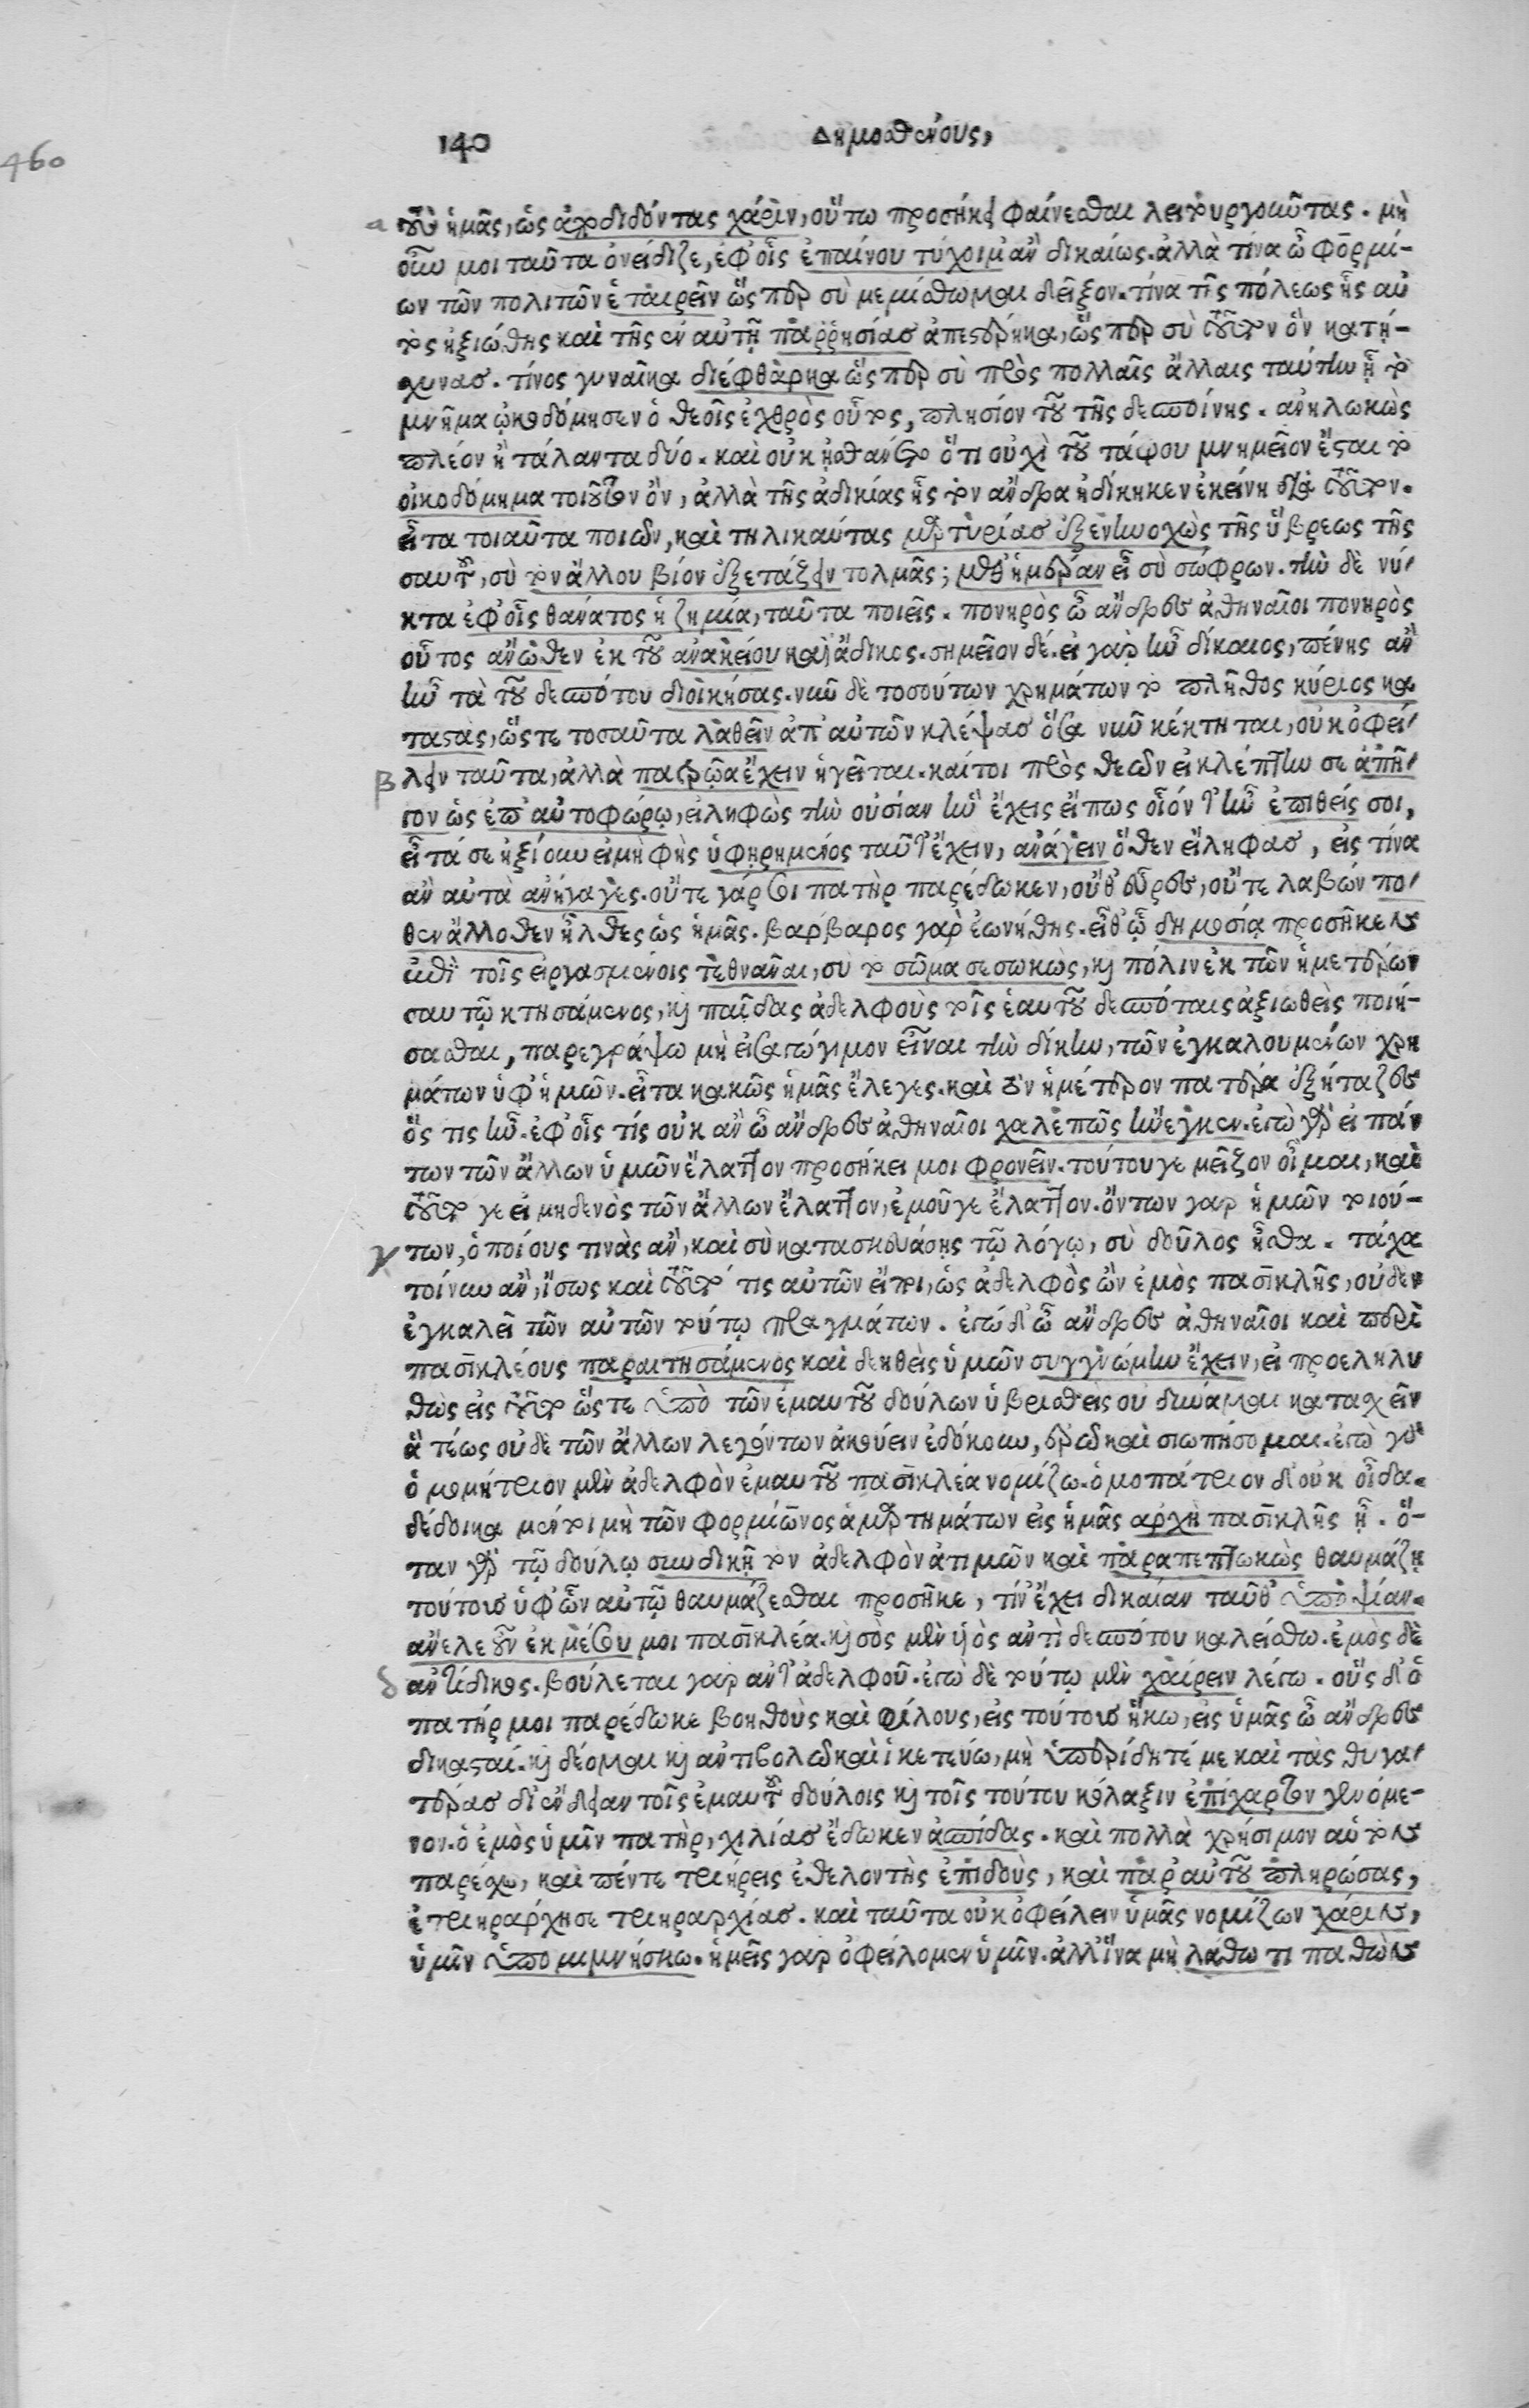 140 Δημοσθένους,
460
a δὲ ἡμᾶς, ὡς ἀποδιδόντας χάριν, οὕτω προσήκει φαίνεσθαι λειτουργοῦντας. μὴ
οὖν μοι ταῦτα ὀνείδιζε, ἐφ' οἷς ἐπαίνου τύχοιμ' ἂν δικαίως. ἀλλὰ τίνα ὦ φορμί-
ων τῶν πολιτῶν ἑταιρεῖν ὥσπερ σὺ μεμίσθωμαι δεῖξον. τίνα τῆς πόλεως ἧς αὐ
τὸς ἠξιώθης καὶ τῆς ἐν αὐτῇ παρρησίας ἀπεστέρηκα, ὥσπερ σὺ τοῦτον ὃν κατῄ-
σχυνας. τίνος γυναῖκα διέφθαρκα ὥσπερ σὺ πρὸς πολλαῖς ἄλλαις ταύτην ᾗ τὸ
μνῆμα ᾠκοδόμησεν ὁ θεοῖς ἐχθρὸς οὗτος, πλησίον τοῦ τῆς δεσποίνης. ἀνηλωκὼς
πλέον ἢ τάλαντα δύο. καὶ οὐκ ᾐσθάνετο ὅτι οὐχὶ τοῦ τάφου μνημεῖον ἔσται τὸ
οἰκοδόμημα τοιοῦτον ὂν, ἀλλὰ τῆς ἀδικίας ἧς τὸν ἄνδρα ἠδίκηκεν ἐκείνη διὰ τοῦτον.
εἶτα τοιαῦτα ποιῶν, καὶ τηλικαύτας μαρτυρίας ἐξενηνοχὼς τῆς ὕβρεως τῆς
σαυτοῦ, σὺ τὸν ἄλλου βίον ἐξετάζειν τολμᾷς; μεθ' ἡμέραν εἶ σὺ σώφρων. τὴν δὲ νύ-
κτα ἐφ' οἷς θάνατος ἡ ζημία, ταῦτα ποιεῖς. πονηρὸς ὦ ἄνδρες ἀθηναῖοι πονηρὸς
οὗτος ἄνωθεν ἐκ τοῦ ἀνακείου καὶ ἄδικος. σημεῖον δέ. εἰ γὰρ ἦν δίκαιος, πένης ἂν
ἦν τὰ τοῦ δεσπότου διοικήσας. νῦν δὲ τοσούτων χρημάτων τὸ πλῆθος κύριος κα
ταστάς, ὥστε τοσαῦτα λαθεῖν ἀπ' αὐτῶν κλέψας ὅσα νῦν κέκτηται, οὐκ ὀφεί-
β λειν ταῦτα, ἀλλὰ πατρῷα ἔχειν ἡγεῖται. καίτοι πρὸς θεῶν εἰ κλέπτην σε ἀπῆ-
γον ὡς ἐπ' αὐτοφώρῳ, εἰληφὼς τὴν οὐσίαν ἣν ἔχεις εἴ πως οἷόν τ' ἦν ἐπιθείς σοι,
εἶτά σε ἠξίουν εἰ μὴ φῂς ὑφῃρημένος ταῦτ' ἔχειν, ἀνάγειν ὅθεν εἴληφας, εἰς τίνα
ἂν αὐτὰ ἀνήγαγες. οὔτε γάρ σοι πατὴρ παρέδωκεν, οὔθ' εὗρες, οὔτε λαβών πο-
θεν ἄλλοθεν ἦλθες ὡς ἡμᾶς. βάρβαρος γὰρ ἐωνήθης. εἶθ' ᾧ δημοσίᾳ προσῆκεν
ἐπὶ τοῖς εἰργασμένοις τεθνάναι, σὺ τὸ σῶμα σεσωκὼς, καὶ πόλιν ἐκ τῶν ἡμετέρων
σαυτῷ κτησάμενος, καὶ παῖδας ἀδελφοὺς τοῖς ἑαυτοῦ δεσπόταις ἀξιωθεὶς ποιή-
σασθαι, παρεγράψω μὴ εἰσαγώγιμον εἶναι τὴν δίκην, τῶν ἐγκαλουμένων χρη
μάτων ὑφ' ἡμῶν. εἶτα κακῶς ἡμᾶς ἔλεγες. καὶ τὸν ἡμέτερον πατέρα ἐξήταζες
ὅς τις ἦν. ἐφ' οἷς τίς οὐκ ἂν ὦ ἄνδρες ἀθηναῖοι χαλεπῶς ἤνεγκεν. ἐγὼ γὰρ εἰ πάν
των τῶν ἄλλων ὑμῶν ἔλαττον προσήκει μοι φρονεῖν. τούτου γε μεῖζον οἶμαι, καὶ
τούτῳ γε εἰ μηδενὸς τῶν ἄλλων ἔλαττον, ἐμοῦ γε ἔλαττον. ὄντων γὰρ ἡμῶν τοιού-
γ των, ὁποίους τινὰς ἂν, καὶ σὺ κατασκευάσῃς τῷ λόγῳ, σὺ δοῦλος ἦσθα. τάχα
τοίνυν ἂν, ἴσως καὶ τοῦτό τις αὐτῶν εἴποι, ὡς ἀδελφὸς ὢν ἐμὸς πασικλῆς, οὐδὲν
ἐγκαλεῖ τῶν αὐτῶν τούτῳ πραγμάτων. ἐγὼ δ' ὦ ἄνδρες ἀθηναῖοι καὶ περὶ
πασικλέους παραιτησάμενος καὶ δεηθεὶς ὑμῶν συγγνώμην ἔχειν, εἰ προεληλυ
θὼς εἰς τοῦτο ὥστε ὑπὸ τῶν ἐμαυτοῦ δούλων ὑβρισθεὶς οὐ δύναμαι κατασχεῖν
ἃ τέως οὐδὲ τῶν ἄλλων λεγόντων ἀκούειν ἐδόκουν, ἐρῶ καὶ σιωπήσομαι. ἐγὼ γὰρ
ὁμομήτριον μὲν ἀδελφὸν ἐμαυτοῦ πασικλέα νομίζω. ὁμοπάτριον δ' οὐκ οἶδα.
δέδοικα μέντοι μὴ τῶν φορμίωνος ἁμαρτημάτων εἰς ἡμᾶς ἀρχὴ πασικλῆς ᾖ. ὅ-
ταν γὰρ τῷ δούλῳ συνδικῇ τὸν ἀδελφὸν ἀτιμῶν καὶ παραπεπτωκὼς θαυμάζῃ
τούτους ὑφ' ὧν αὐτῷ θαυμάζεσθαι προσῆκε, τίν' ἔχει δικαίαν ταῦθ' ὑποψίαν.
ἄνελε οὖν ἐκ μέσου μοι πασικλέα. καὶ σὸς μὲν υἱὸς ἀντὶ δεσπότου καλείσθω. ἐμὸς δὲ
δ ἀντίδικος. βούλεται γὰρ ἀντ' ἀδελφοῦ. ἐγὼ δὲ τούτῳ μὲν χαίρειν λέγω. οὓς δ' ὁ
πατήρ μοι παρέδωκε βοηθοὺς καὶ φίλους, εἰς τούτους ἥκω, εἰς ὑμᾶς ὦ ἄνδρες
δικασταί. καὶ δέομαι καὶ ἀντιβολῶ καὶ ἱκετεύω, μὴ ὑπερίδητέ με καὶ τὰς θυγα-
τέρας δι' ἔνδειαν τοῖς ἐμαυτοῦ δούλοις καὶ τοῖς τούτου κόλαξιν ἐπίχαρτον γενόμε-
νον. ὁ ἐμὸς ὑμῖν πατὴρ, χιλίας ἔδωκεν ἀσπίδας. καὶ πολλὰ χρήσιμον αὑτὸν
παρέσχω, καὶ πέντε τριήρεις ἐθελοντὴς ἐπιδοὺς, καὶ παρ' αὑτοῦ πληρώσας,
ἐτριηράρχησε τριηραρχίας. καὶ ταῦτα οὐκ ὀφείλειν ὑμᾶς νομίζων χάριν,
ὑμῖν ὑπομιμνήσκω. ἡμεῖς γὰρ ὀφείλομεν ὑμῖν. ἀλλ' ἵνα μὴ λάθω τι παθὼν